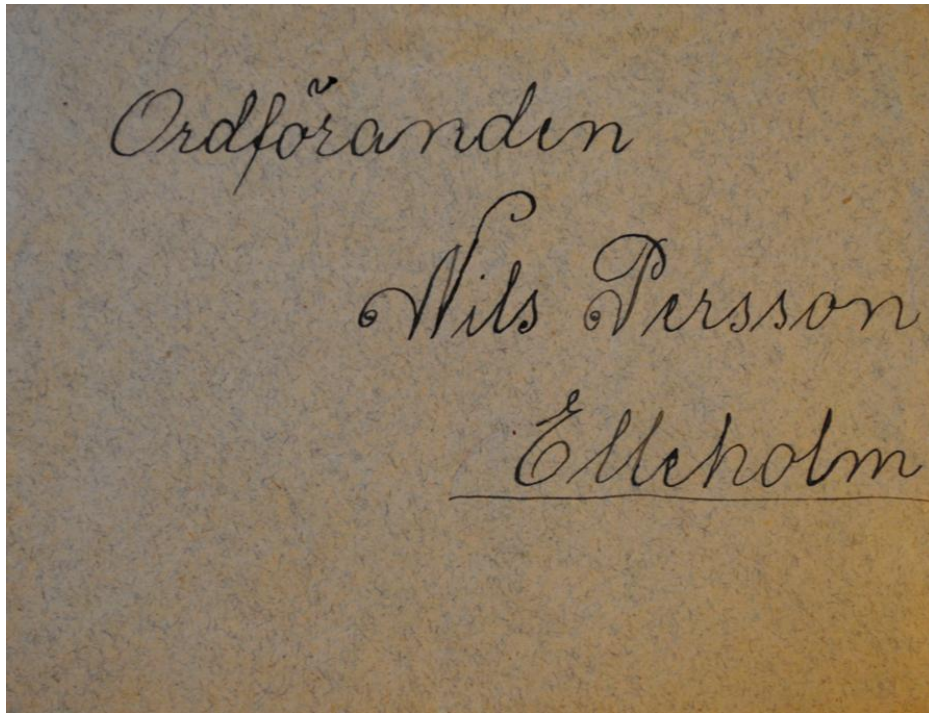 Ordföranden
Nils Persson
Elleholm